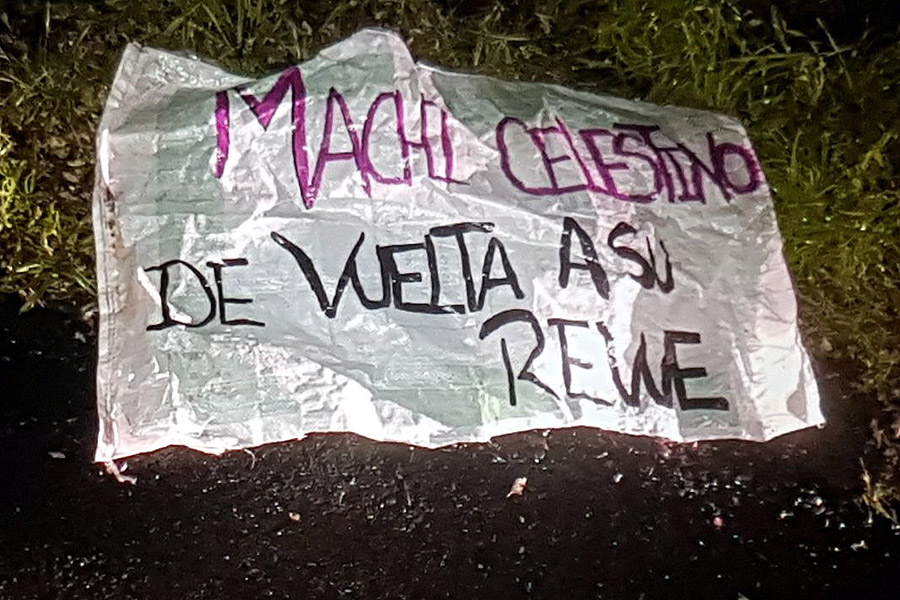 MACHI CELESTINO
DE VUELTA A SU
REWE